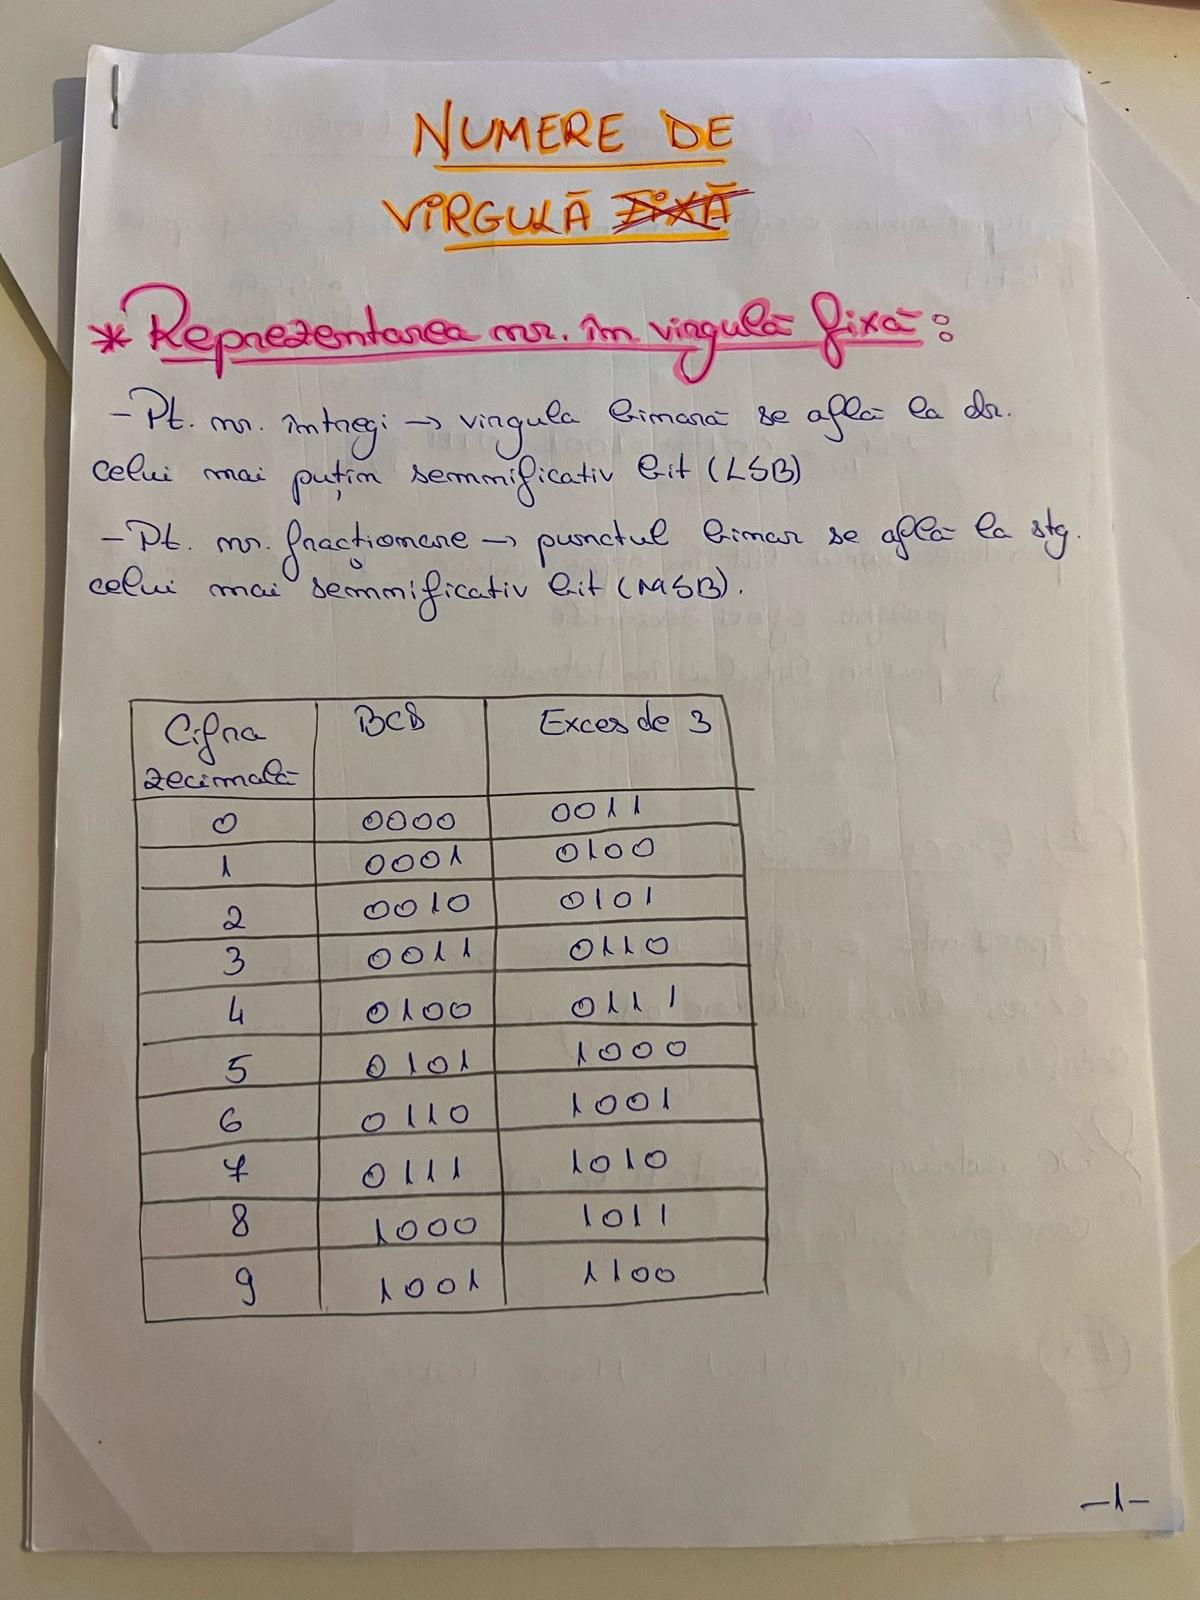 NUMERE DE
VIRGULĂ FIXĂ
* Reprezentarea nr. în virgulă fixă:
- Pt. nr. întregi → virgula binară se află la dr.
celui mai puțin semnificativ bit (LSB)
- Pt. nr. fracționare → punctul binar se află la stg.
celui mai semnificativ bit (MSB).
Cifra zecimală BCD Exces de 3
0 0000 0011
1 0001 0100
2 0010 0101
3 0011 0110
4 0100 0111
5 0101 1000
6 0110 1001
7 0111 1010
8 1000 1011
9 1001 1100
-1-